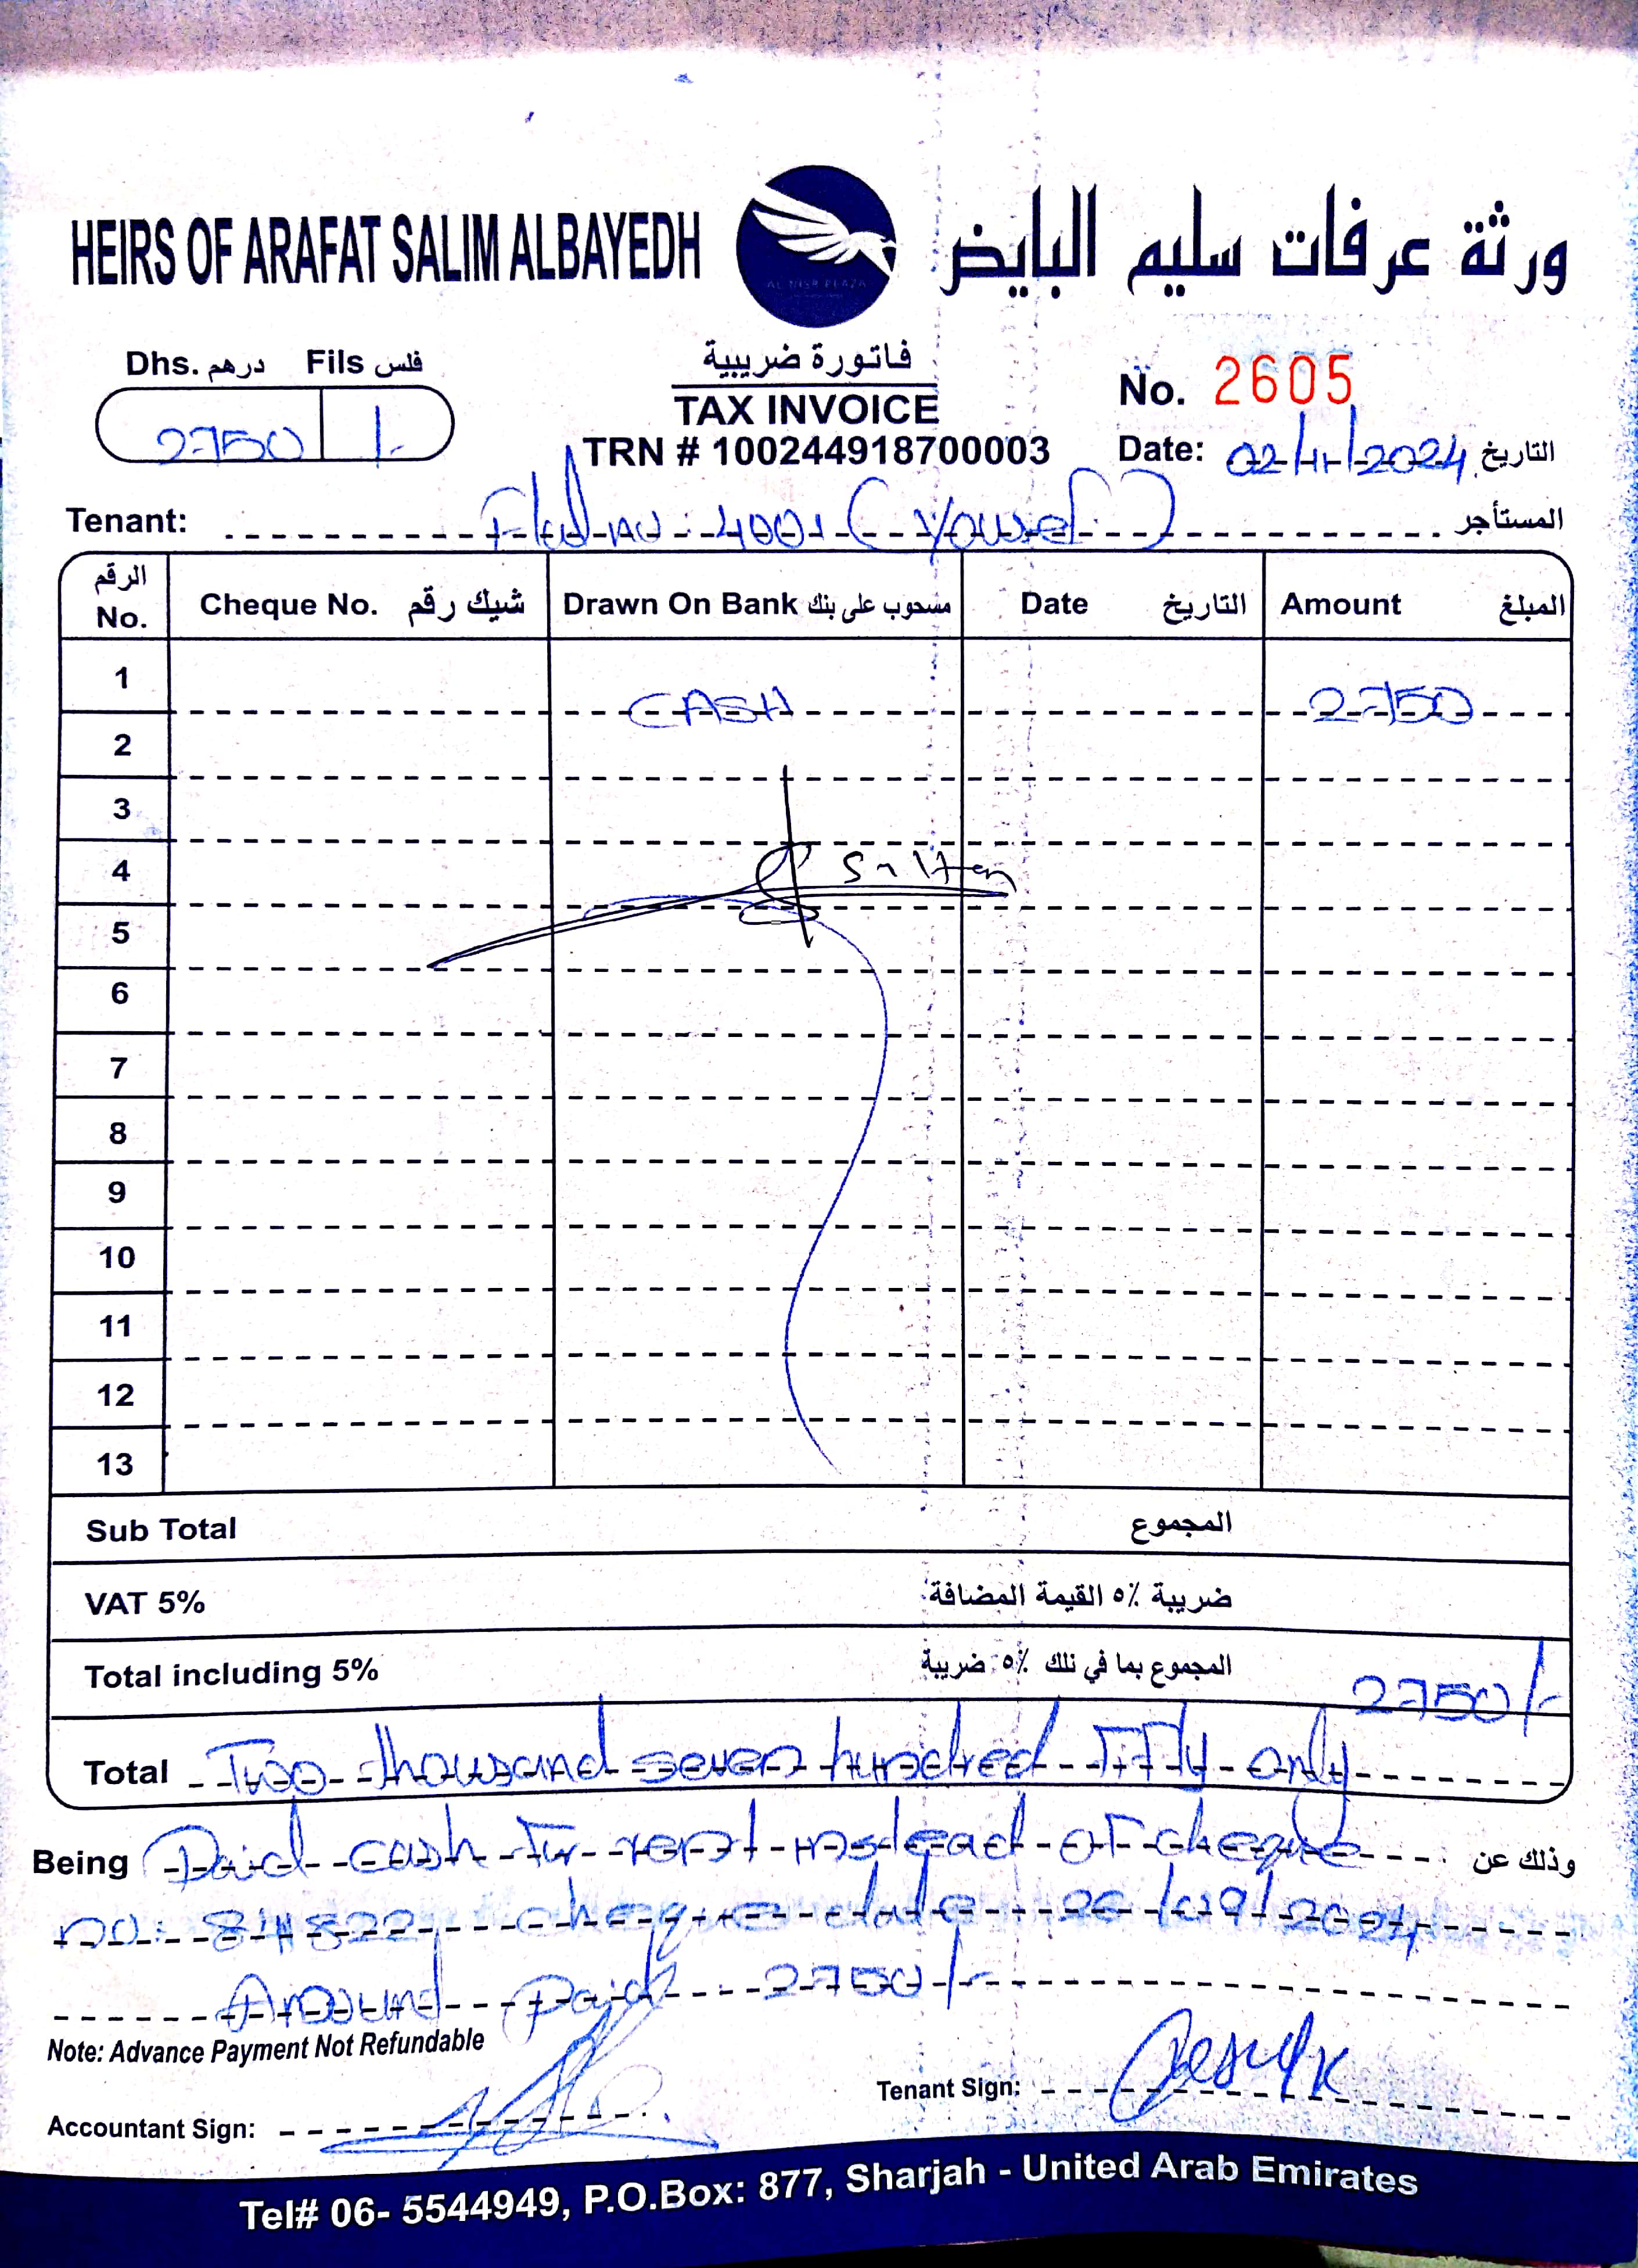 HEIRS OF ARAFAT SALIM ALBAYEDH
ورثة عرفات سليم البايض
AL NISR PLAZA
Dhs. درهم Fils فلس
2750 /-
فاتورة ضريبية
TAX INVOICE
TRN # 100244918700003
No. 2605
Date: 02/11/2024 التاريخ
Tenant: Flat no: 4001 (Yousef) المستأجر
الرقم No. Cheque No. شيك رقم Drawn On Bank مسحوب على بنك Date التاريخ Amount المبلغ
1 CASH 2750
2
3
4 Sultan
5
6
7
8
9
10
11
12
13
Sub Total المجموع
VAT 5% ضريبة ٥٪ القيمة المضافة:
Total including 5% المجموع بما في ذلك ٥٪ ضريبة 2750/-
Total Two thousand seven hundred Fifty only
Being Paid cash for rent instead of cheque وذلك عن
no: 811822 cheque date: 26/09/2024
Amount paid: 2750/-
Note: Advance Payment Not Refundable
Accountant Sign:
Tenant Sign:
Tel# 06- 5544949, P.O.Box: 877, Sharjah - United Arab Emirates